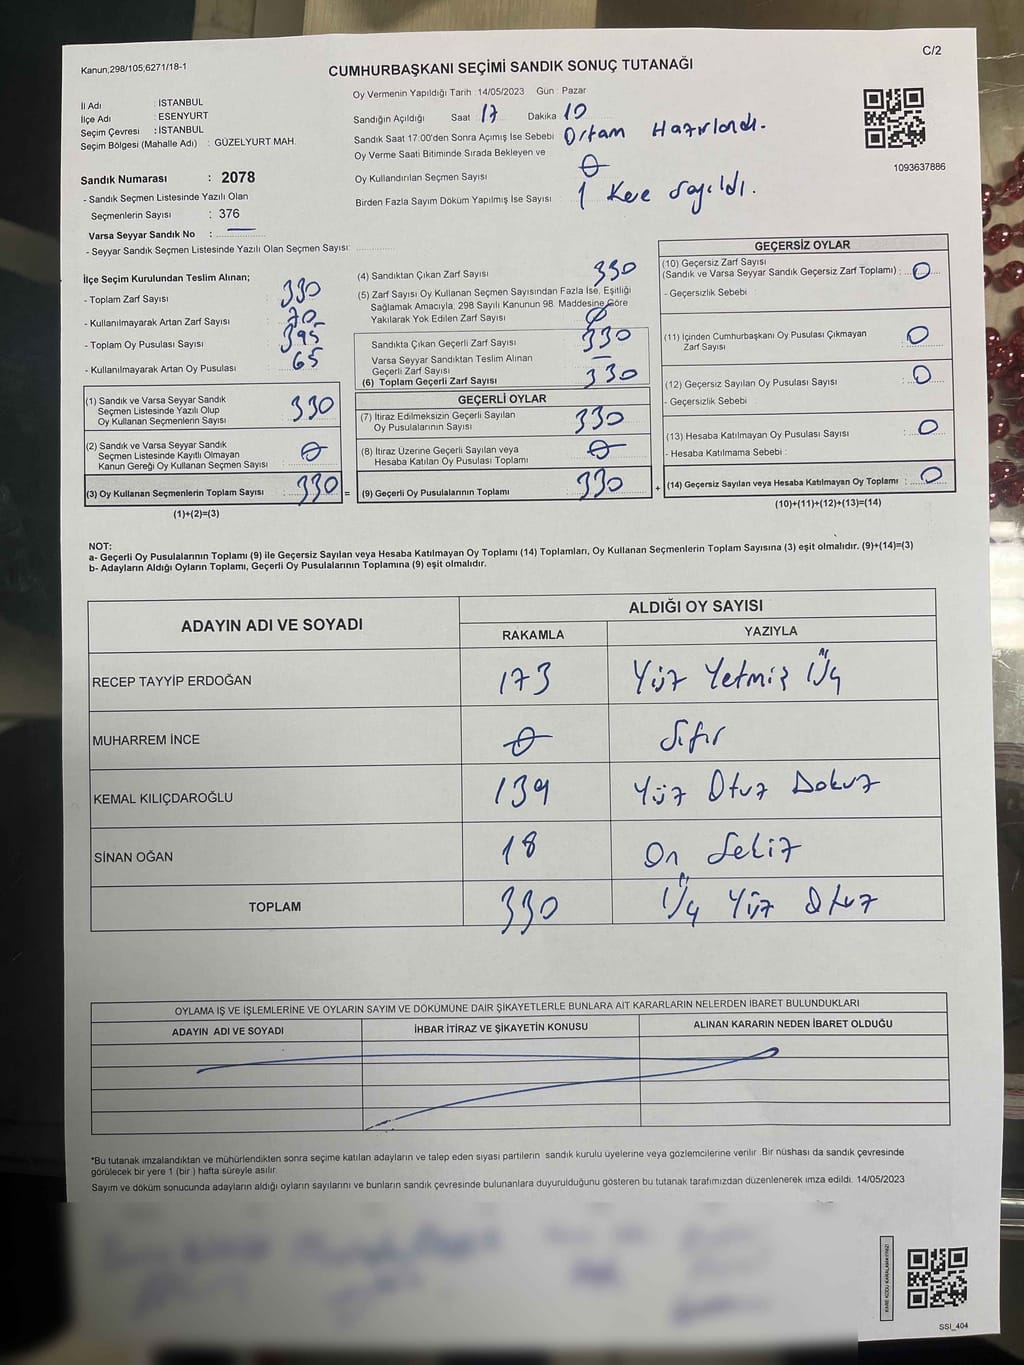 C/2
Kanun,298/105;6271/18-1
CUMHURBAŞKANI SEÇİMİ SANDIK SONUÇ TUTANAĞI
İl Adı : İSTANBUL
İlçe Adı : ESENYURT
Seçim Çevresi : İSTANBUL
Seçim Bölgesi (Mahalle Adı) : GÜZELYURT MAH.
Sandık Numarası : 2078
- Sandık Seçmen Listesinde Yazılı Olan
Seçmenlerin Sayısı : 376
Varsa Seyyar Sandık No :
- Seyyar Sandık Seçmen Listesinde Yazılı Olan Seçmen Sayısı:
Oy Vermenin Yapıldığı Tarih : 14/05/2023 Gün : Pazar
Sandığın Açıldığı Saat 17 Dakika 10
Sandık Saat 17:00'den Sonra Açımış İse Sebebi Ortam Hazırlandı.
Oy Verme Saati Bitiminde Sırada Bekleyen ve
Oy Kullandırılan Seçmen Sayısı 0
Birden Fazla Sayım Döküm Yapılmış İse Sayısı 1 Kere Sayıldı.
1093637886
İlçe Seçim Kurulundan Teslim Alınan;
- Toplam Zarf Sayısı : 330
- Kullanılmayarak Artan Zarf Sayısı : 70
- Toplam Oy Pusulası Sayısı : 395
- Kullanılmayarak Artan Oy Pusulası : 65
(1) Sandık ve Varsa Seyyar Sandık
Seçmen Listesinde Yazılı Olup
Oy Kullanan Seçmenlerin Sayısı 330
(2) Sandık ve Varsa Seyyar Sandık
Seçmen Listesinde Kayıtlı Olmayan
Kanun Gereği Oy Kullanan Seçmen Sayısı 0
(3) Oy Kullanan Seçmenlerin Toplam Sayısı : 330 =
(1)+(2)=(3)
(4) Sandıktan Çıkan Zarf Sayısı 330
(5) Zarf Sayısı Oy Kullanan Seçmen Sayısından Fazla İse, Eşitliği
Sağlamak Amacıyla, 298 Sayılı Kanunun 98. Maddesine Göre
Yakılarak Yok Edilen Zarf Sayısı 0
Sandıkta Çıkan Geçerli Zarf Sayısı 330
Varsa Seyyar Sandıktan Teslim Alınan
Geçerli Zarf Sayısı
(6) Toplam Geçerli Zarf Sayısı 330
GEÇERLİ OYLAR
(7) İtiraz Edilmeksizin Geçerli Sayılan
Oy Pusulalarının Sayısı 330
(8) İtiraz Üzerine Geçerli Sayılan veya
Hesaba Katılan Oy Pusulası Toplamı 0
(9) Geçerli Oy Pusulalarının Toplamı 330 +
GEÇERSİZ OYLAR
(10) Geçersiz Zarf Sayısı
(Sandık ve Varsa Seyyar Sandık Geçersiz Zarf Toplamı) : 0
- Geçersizlik Sebebi :
(11) İçinden Cumhurbaşkanı Oy Pusulası Çıkmayan
Zarf Sayısı 0
(12) Geçersiz Sayılan Oy Pusulası Sayısı : 0
- Geçersizlik Sebebi :
(13) Hesaba Katılmayan Oy Pusulası Sayısı : 0
- Hesaba Katılmama Sebebi :
(14) Geçersiz Sayılan veya Hesaba Katılmayan Oy Toplamı : 0
(10)+(11)+(12)+(13)=(14)
NOT:
a- Geçerli Oy Pusulalarının Toplamı (9) ile Geçersiz Sayılan veya Hesaba Katılmayan Oy Toplamı (14) Toplamları, Oy Kullanan Seçmenlerin Toplam Sayısına (3) eşit olmalıdır. (9)+(14)=(3)
b- Adayların Aldığı Oyların Toplamı, Geçerli Oy Pusulalarının Toplamına (9) eşit olmalıdır.
ADAYIN ADI VE SOYADI
ALDIĞI OY SAYISI
RAKAMLA YAZIYLA
RECEP TAYYİP ERDOĞAN 173 Yüz Yetmiş Üç
MUHARREM İNCE 0 Sıfır
KEMAL KILIÇDAROĞLU 139 Yüz Otuz Dokuz
SİNAN OĞAN 18 On Sekiz
TOPLAM 330 Üç Yüz Otuz
OYLAMA İŞ VE İŞLEMLERİNE VE OYLARIN SAYIM VE DÖKÜMÜNE DAİR ŞİKAYETLERLE BUNLARA AİT KARARLARIN NELERDEN İBARET BULUNDUKLARI
ADAYIN ADI VE SOYADI İHBAR İTİRAZ VE ŞİKAYETİN KONUSU ALINAN KARARIN NEDEN İBARET OLDUĞU
*Bu tutanak imzalandıktan ve mühürlendikten sonra seçime katılan adayların ve talep eden siyasi partilerin sandık kurulu üyelerine veya gözlemcilerine verilir. Bir nüshası da sandık çevresinde
görülecek bir yere 1 (bir ) hafta süreyle asılır.
Sayım ve döküm sonucunda adayların aldığı oyların sayılarını ve bunların sandık çevresinde bulunanlara duyurulduğunu gösteren bu tutanak tarafımızdan düzenlenerek imza edildi. 14/05/2023
SSI_404